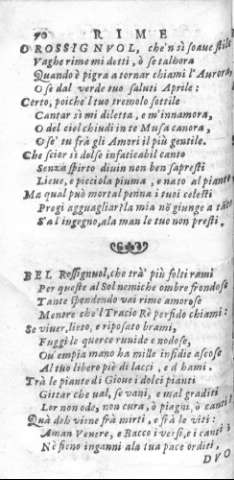 70 RIME
O ROSSIGNVOL, che'n sì soaue stile
Vaghe rime mi detti, ò se talhora
Quando è pigra a tornar chiami l'Aurora,
O se dal verde tuo saluti Aprile:
Certo, poiche'l tuo tremolo sottile
Cantar sì mi diletta, e m'innamora,
O del ciel chiudi in te Musa canora,
O se' tu frà gli Amori il più gentile.
Che scior sì dolse infaticabil canto
Senza spirto diuin non ben sapresti
Lieue, e picciola piuma, e nato al pianto
Ma qual può mortal penna i tuoi celesti
Pregi agguagliar? la mia nõ giunge a tãto
S'al ingegno, ala man le tue non presti.
BEL Rossignuol, che trà più folti rami
Per queste al Sol nemiche ombre frondose
Tante spendendo vai rime amorose
Mentre che'l Tracio Rè perfido chiami:
Se viuer lieto, e riposato brami,
Fuggi le querce ruuide e nodose,
Ou' empia mano ha mille insidie ascose
Al tuo libero piè di lacci, e d hami.
Trà le piante di Gioue i dolci pianti
Gittar che ual, se vani, e mal graditi
Lor non ode, non cura, ò piagni, ò canti?
Quà deh viene frà mirti, e frà le viti:
Aman Venere, e Bacco i versi, e i canti
Nè fieno inganni ala tua pace orditi,
DVO